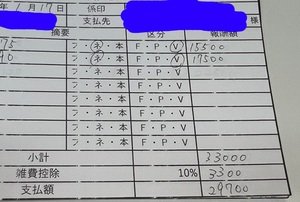 年 1 月 17 日 係印
支払先 様
摘要 区分 報酬額
75 フ・ネ・本 F・P・V 15500
90 フ・ネ・本 F・P・V 17500
フ・ネ・本 F・P・V
フ・ネ・本 F・P・V
フ・ネ・本 F・P・V
フ・ネ・本 F・P・V
小計 33000
雑費控除 10% 3300
支払額 29700